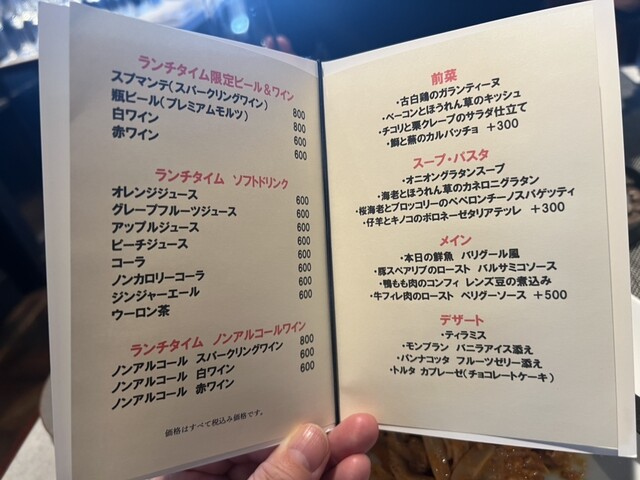 ランチタイム限定ビール＆ワイン
スプマンテ(スパークリングワイン) 800
瓶ビール(プレミアムモルツ) 800
白ワイン 600
赤ワイン 600
ランチタイム ソフトドリンク
オレンジジュース 600
グレープフルーツジュース 600
アップルジュース 600
ピーチジュース 600
コーラ 600
ノンカロリーコーラ 600
ジンジャーエール 600
ウーロン茶 600
ランチタイム ノンアルコールワイン
ノンアルコール スパークリングワイン 800
ノンアルコール 白ワイン 600
ノンアルコール 赤ワイン 600
価格はすべて税込み価格です。
前菜
・古白鶏のガランティーヌ
・ベーコンとほうれん草のキッシュ
・チコリと栗クレープのサラダ仕立て
・鰤と蕪のカルパッチョ +300
スープ・パスタ
・オニオングラタンスープ
・海老とほうれん草のカネロニグラタン
・桜海老とブロッコリーのペペロンチーノスパゲッティ
・仔羊とキノコのボロネーゼタリアテッレ +300
メイン
・本日の鮮魚 バリグール風
・豚スペアリブのロースト バルサミコソース
・鴨もも肉のコンフィ レンズ豆の煮込み
・牛フィレ肉のロースト ペリグーソース +500
デザート
・ティラミス
・モンブラン バニラアイス添え
・パンナコッタ フルーツゼリー添え
・トルタ カプレーゼ(チョコレートケーキ)